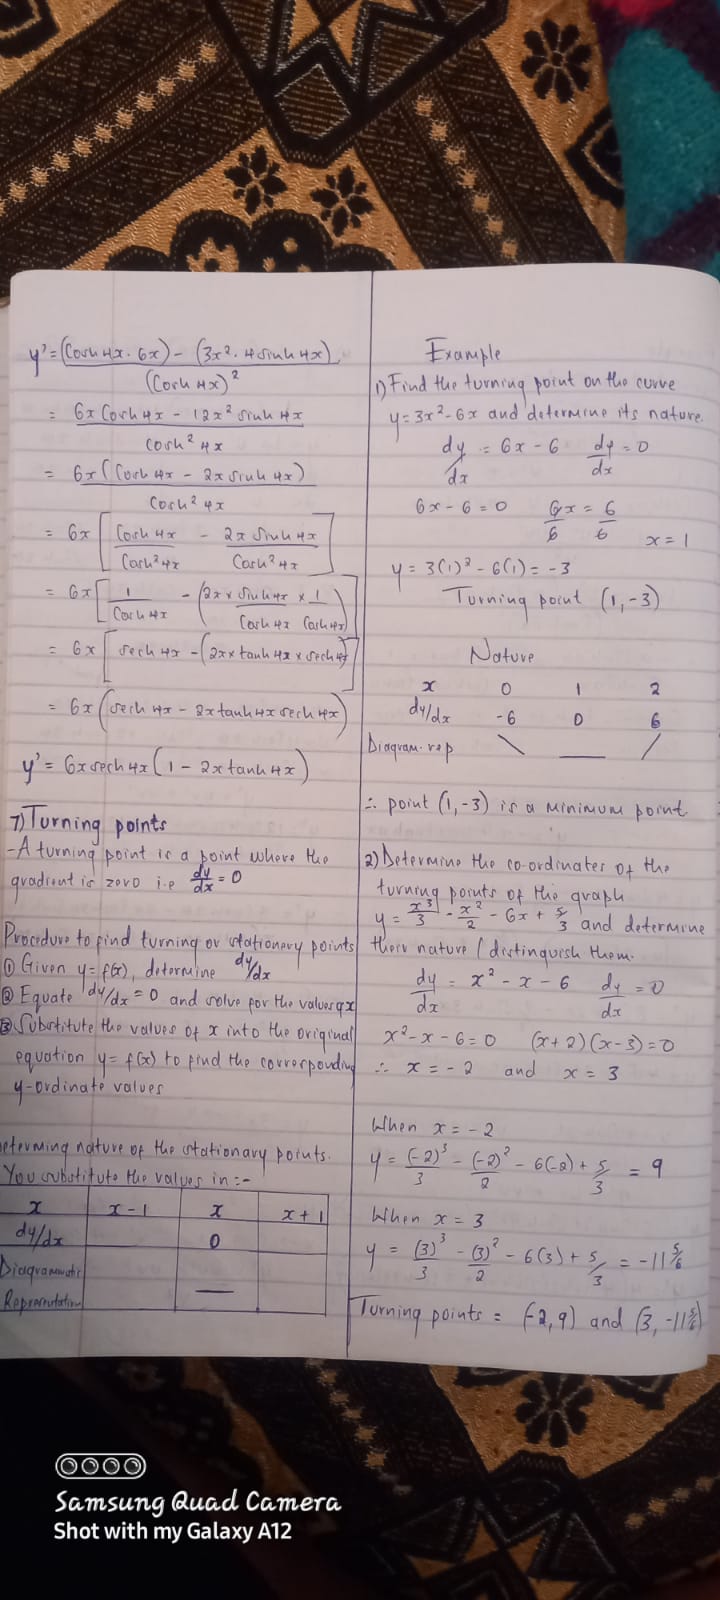 y' = (Cosh 4x · 6x) - (3x² · 4 sinh 4x)
(Cosh 4x)²
= 6x Cosh 4x - 12x² sinh 4x
cosh² 4x
= 6x (Cosh 4x - 2x sinh 4x)
Cosh² 4x
= 6x [Cosh 4x - 2x sinh 4x]
Cosh² 4x Cosh² 4x
= 6x [1 - (2x × sinh 4x × 1)]
Cosh 4x Cosh 4x Cosh 4x
= 6x [sech 4x - (2x × tanh 4x × sech 4x)]
= 6x (sech 4x - 2x tanh 4x sech 4x)
y' = 6x sech 4x (1 - 2x tanh 4x)
7) Turning points
- A turning point is a point where the
gradient is zero i.e dy/dx = 0
Procedure to find turning or stationery points
① Given y = f(x), determine dy/dx
② Equate dy/dx = 0 and solve for the values of x
③ Substitute the values of x into the original
equation y = f(x) to find the corresponding
y-ordinate values
nature of the stationary points.
You substitute the values in :-
x x - 1 x x + 1
dy/dx 0
Diagrammatic
Representation —
Example
1) Find the turning point on the curve
y = 3x² - 6x and determine its nature.
dy/dx = 6x - 6 dy/dx = 0
6x - 6 = 0 6x/6 = 6/6
x = 1
y = 3(1)² - 6(1) = -3
Turning point (1, -3)
Nature
x 0 1 2
dy/dx -6 0 6
Diagram. rep \ — /
∴ point (1, -3) is a minimum point
2) Determine the co-ordinates of the
turning points of the graph
y = x³/3 - x²/2 - 6x + 5/3 and determine
their nature / distinguish them.
dy/dx = x² - x - 6 dy/dx = 0
x² - x - 6 = 0 (x + 2)(x - 3) = 0
∴ x = -2 and x = 3
When x = -2
y = (-2)³/3 - (-2)²/2 - 6(-2) + 5/3 = 9
When x = 3
y = (3)³/3 - (3)²/2 - 6(3) + 5/3 = -11 5/6
Turning points = (-2, 9) and (3, -11 5/6)
Samsung Quad Camera
Shot with my Galaxy A12